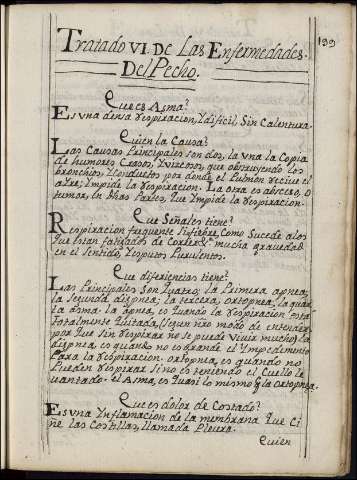 199
Tratado VI. De Las Enfermedades.
Del Pecho.
Que es Asma?
Es una densa respiracion, y dificil, Sin Calentura.
Quien la Causa?
Las Causas Principales son dos, la una la Copia
de humores Crasos, Viscosos, que obstruyendo los
bronchios, y Conductos por donde el Pulmon recive el
ayre; Impide la respiracion. La otra es absceso, o
tumor, en dhas Partes, que Impide la respiracion.
Que Señales tiene?
Respiracion frequente sin fiebre, Como Sucede a los
que estan fatigados de Correr, y mucha gravedad
en el Sentido, y esputos Purulentos.
Que diferiencias tiene?
Las Principales son quatro; la Primera apnea;
la Segunda dispnea; la tercera, ortopnea; la quar
ta asma. la apnea, es quando la respiracion esta
totalmente quitada, (segun nro modo de entender,
por que Sin respirar no se puede Vivir mucho) la
dispnea es quando no es grande el Impedimento
Para la respiracion. ortopnea, es quando no
Pueden respirar Sino es teniendo el Cuello le
vantado. el Asma, es quasi lo mismo q la ortopnea.
Que es dolor de Costado?
Es una Inflamacion de la membrana que Ci
ñe las Costillas, llamada Pleura.
Quien